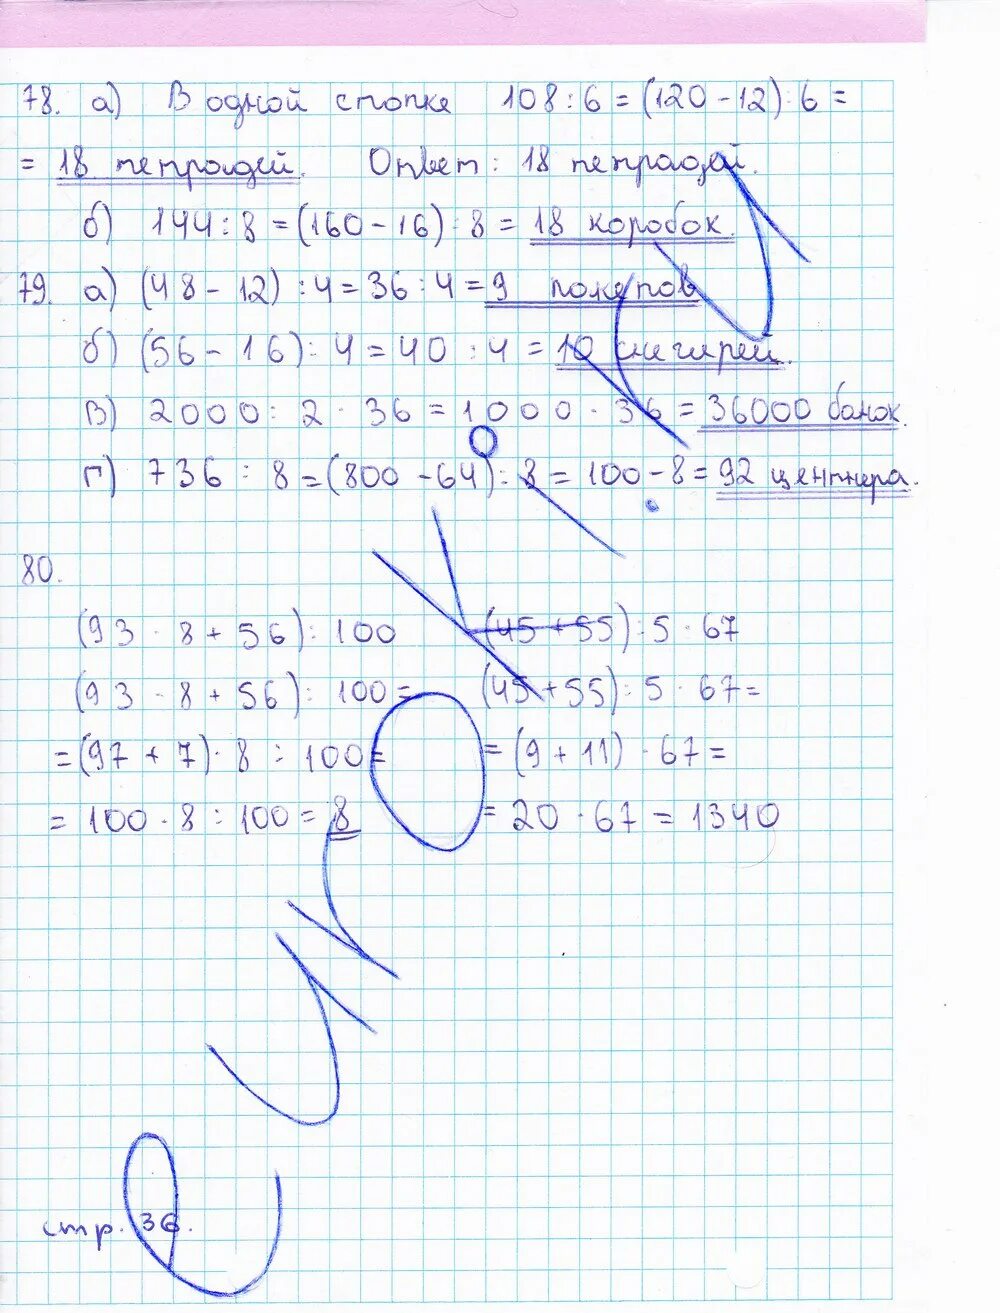 78. а) В одной стопке 108 : 6 = (120 - 12) : 6 =
= 18 тетрадей. Ответ: 18 тетрадей.
б) 144 : 8 = (160 - 16) : 8 = 18 коробок.
79. а) (48 - 12) : 4 = 36 : 4 = 9 пакетов
б) (56 - 16) : 4 = 40 : 4 = 10 снегирей.
в) 2000 : 2 · 36 = 1000 · 36 = 36000 банок.
г) 736 : 8 = (800 - 64) : 8 = 100 - 8 = 92 центнера.
80.
(93 · 8 + 56) : 100 (45 + 55) : 5 · 67
(93 · 8 + 56) : 100 = (45 + 55) : 5 · 67 =
= (97 + 7) · 8 : 100 = = (9 + 11) · 67 =
= 100 · 8 : 100 = 8 = 20 · 67 = 1340
стр. 36.